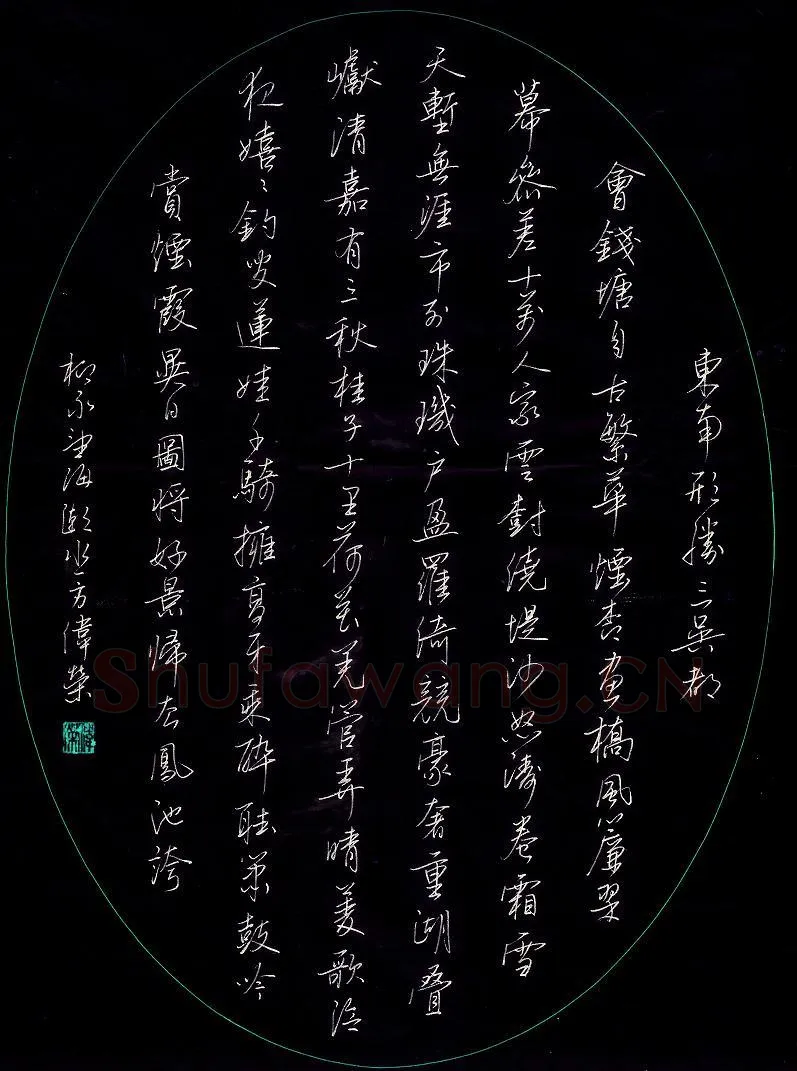 東南形勝三吳都
會錢塘自古繁華煙杏画橋風簾翠
幕參差十萬人家雲樹繞堤沙怒濤卷霜雪
天塹無涯市列珠璣户盈羅綺競豪奢重湖疊
巘清嘉有三秋桂子十里荷花羌管弄晴菱歌泛
夜嬉〻釣叟蓮娃千騎擁高牙乘醉聽簫鼓吟
賞煙霞異日圖將好景歸去鳳池誇
柳永望海潮水一方偉榮
Shufawang.CN